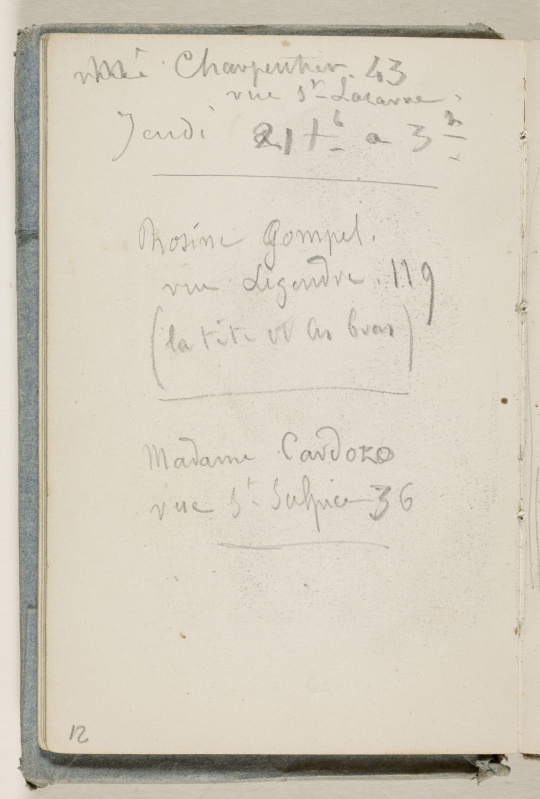 Mme Charpentier. 43
rue St Lazare.
Jeudi 21 à 3h
Rosine Gompel.
rue Legendre. 119
(la tête et les bras)
Madame Cardozo
rue St Sulpice 36
12